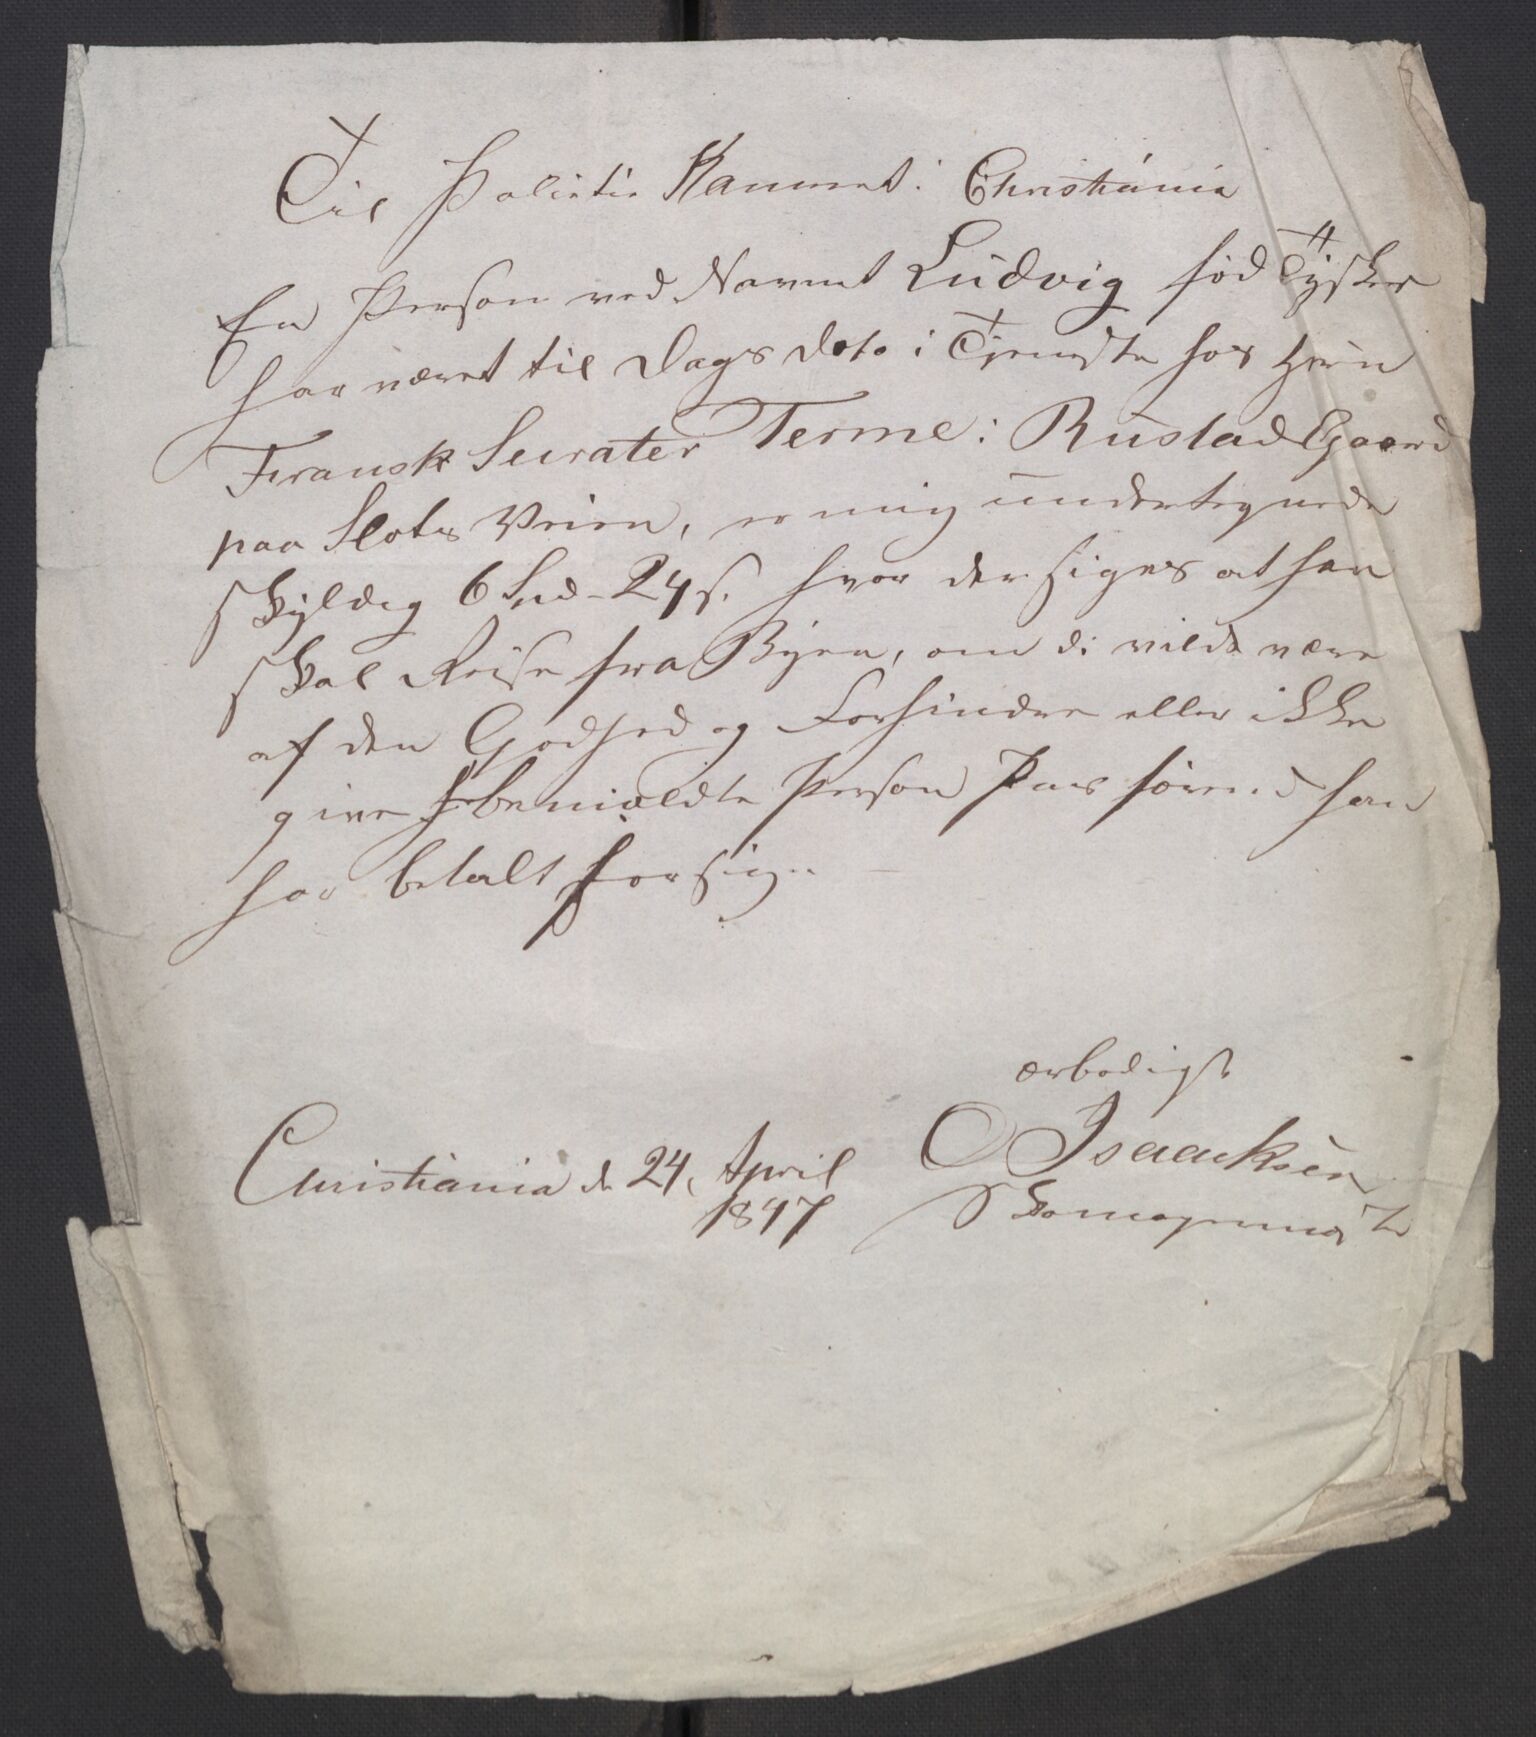 Til Polietie Kammet i Christiania
En Person ved Navnet Ludvig fød Tysker
har været til Dags Dato i Tjenste hos Herr
Fransk Seirater Terme i Rustad Gaard
paa Slots Veien, er mig undertegnede
skyldig 6 24 s. hvor der siges at han
skal Reise fra Byen, om di vilde være
af den Godhed og Forhindre eller ikke
give benævldte Person Pas førend han
har betalt for sig..
ærbødigst
Christiania d. 24, April
1847
Isaacksen
Skomagermester